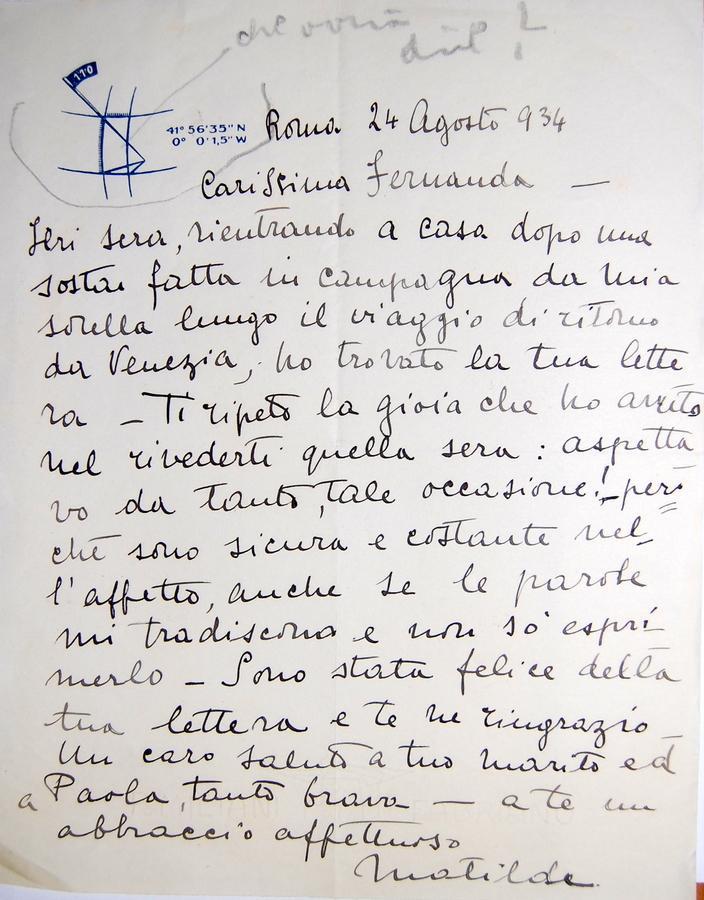 che ovvia
dire !
110
41° 56'35" N
0° 0'1,5" W
Roma 24 Agosto 934
Carissima Fernanda —
Ieri sera, rientrando a casa dopo una
sosta fatta in campagna da mia
sorella lungo il viaggio di ritorno
da Venezia, ho trovato la tua lette
ra — Ti ripeto la gioia che ho avuto
nel rivederti quella sera : aspetta
vo da tanto, tale occasione! per-
chè sono sicura e costante nel-
l'affetto, anche se le parole
mi tradiscono e non so' espri-
merlo — Sono stata felice della
tua lettera e te ne ringrazio —
Un caro saluto a tuo marito ed
a Paola, tanto brava — a te un
abbraccio affettuoso
Matilde.